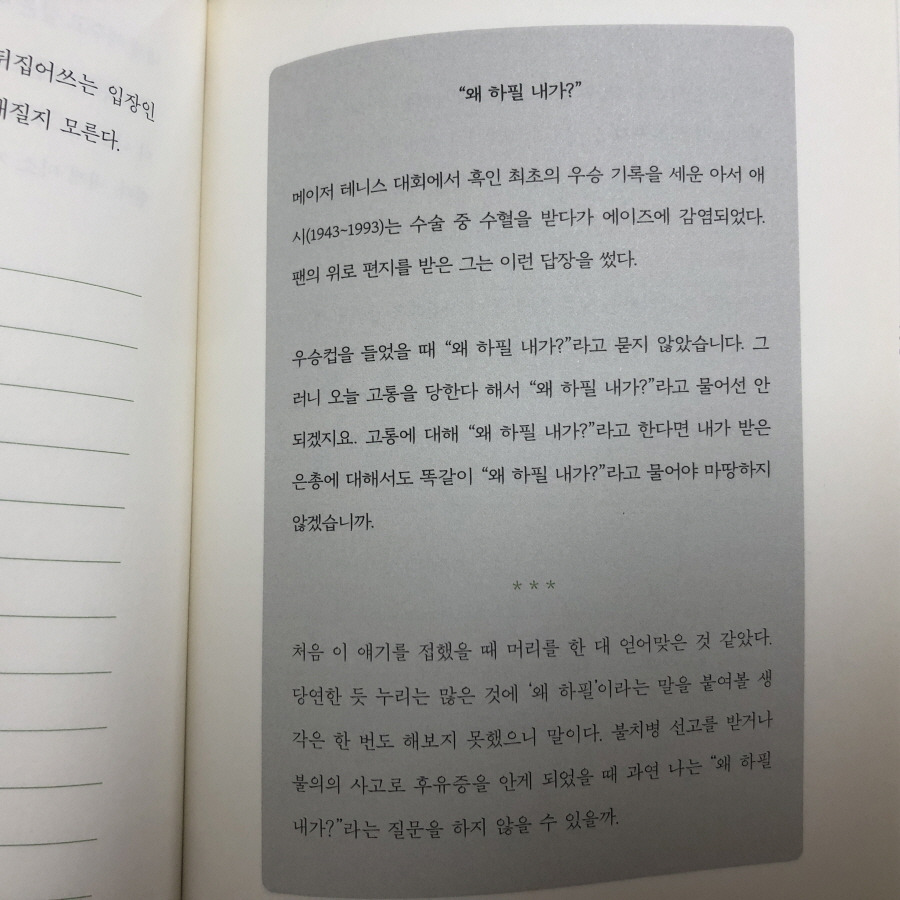 뒤집어쓰는 입장인
해질지 모른다.
“왜 하필 내가?”
메이저 테니스 대회에서 흑인 최초의 우승 기록을 세운 아서 애
시(1943~1993)는 수술 중 수혈을 받다가 에이즈에 감염되었다.
팬의 위로 편지를 받은 그는 이런 답장을 썼다.
우승컵을 들었을 때 “왜 하필 내가?”라고 묻지 않았습니다. 그
러니 오늘 고통을 당한다 해서 “왜 하필 내가?”라고 물어선 안
되겠지요. 고통에 대해 “왜 하필 내가?”라고 한다면 내가 받은
은총에 대해서도 똑같이 “왜 하필 내가?”라고 물어야 마땅하지
않겠습니까.
***
처음 이 얘기를 접했을 때 머리를 한 대 얻어맞은 것 같았다.
당연한 듯 누리는 많은 것에 ‘왜 하필’이라는 말을 붙여볼 생
각은 한 번도 해보지 못했으니 말이다. 불치병 선고를 받거나
불의의 사고로 후유증을 안게 되었을 때 과연 나는 “왜 하필
내가?”라는 질문을 하지 않을 수 있을까.